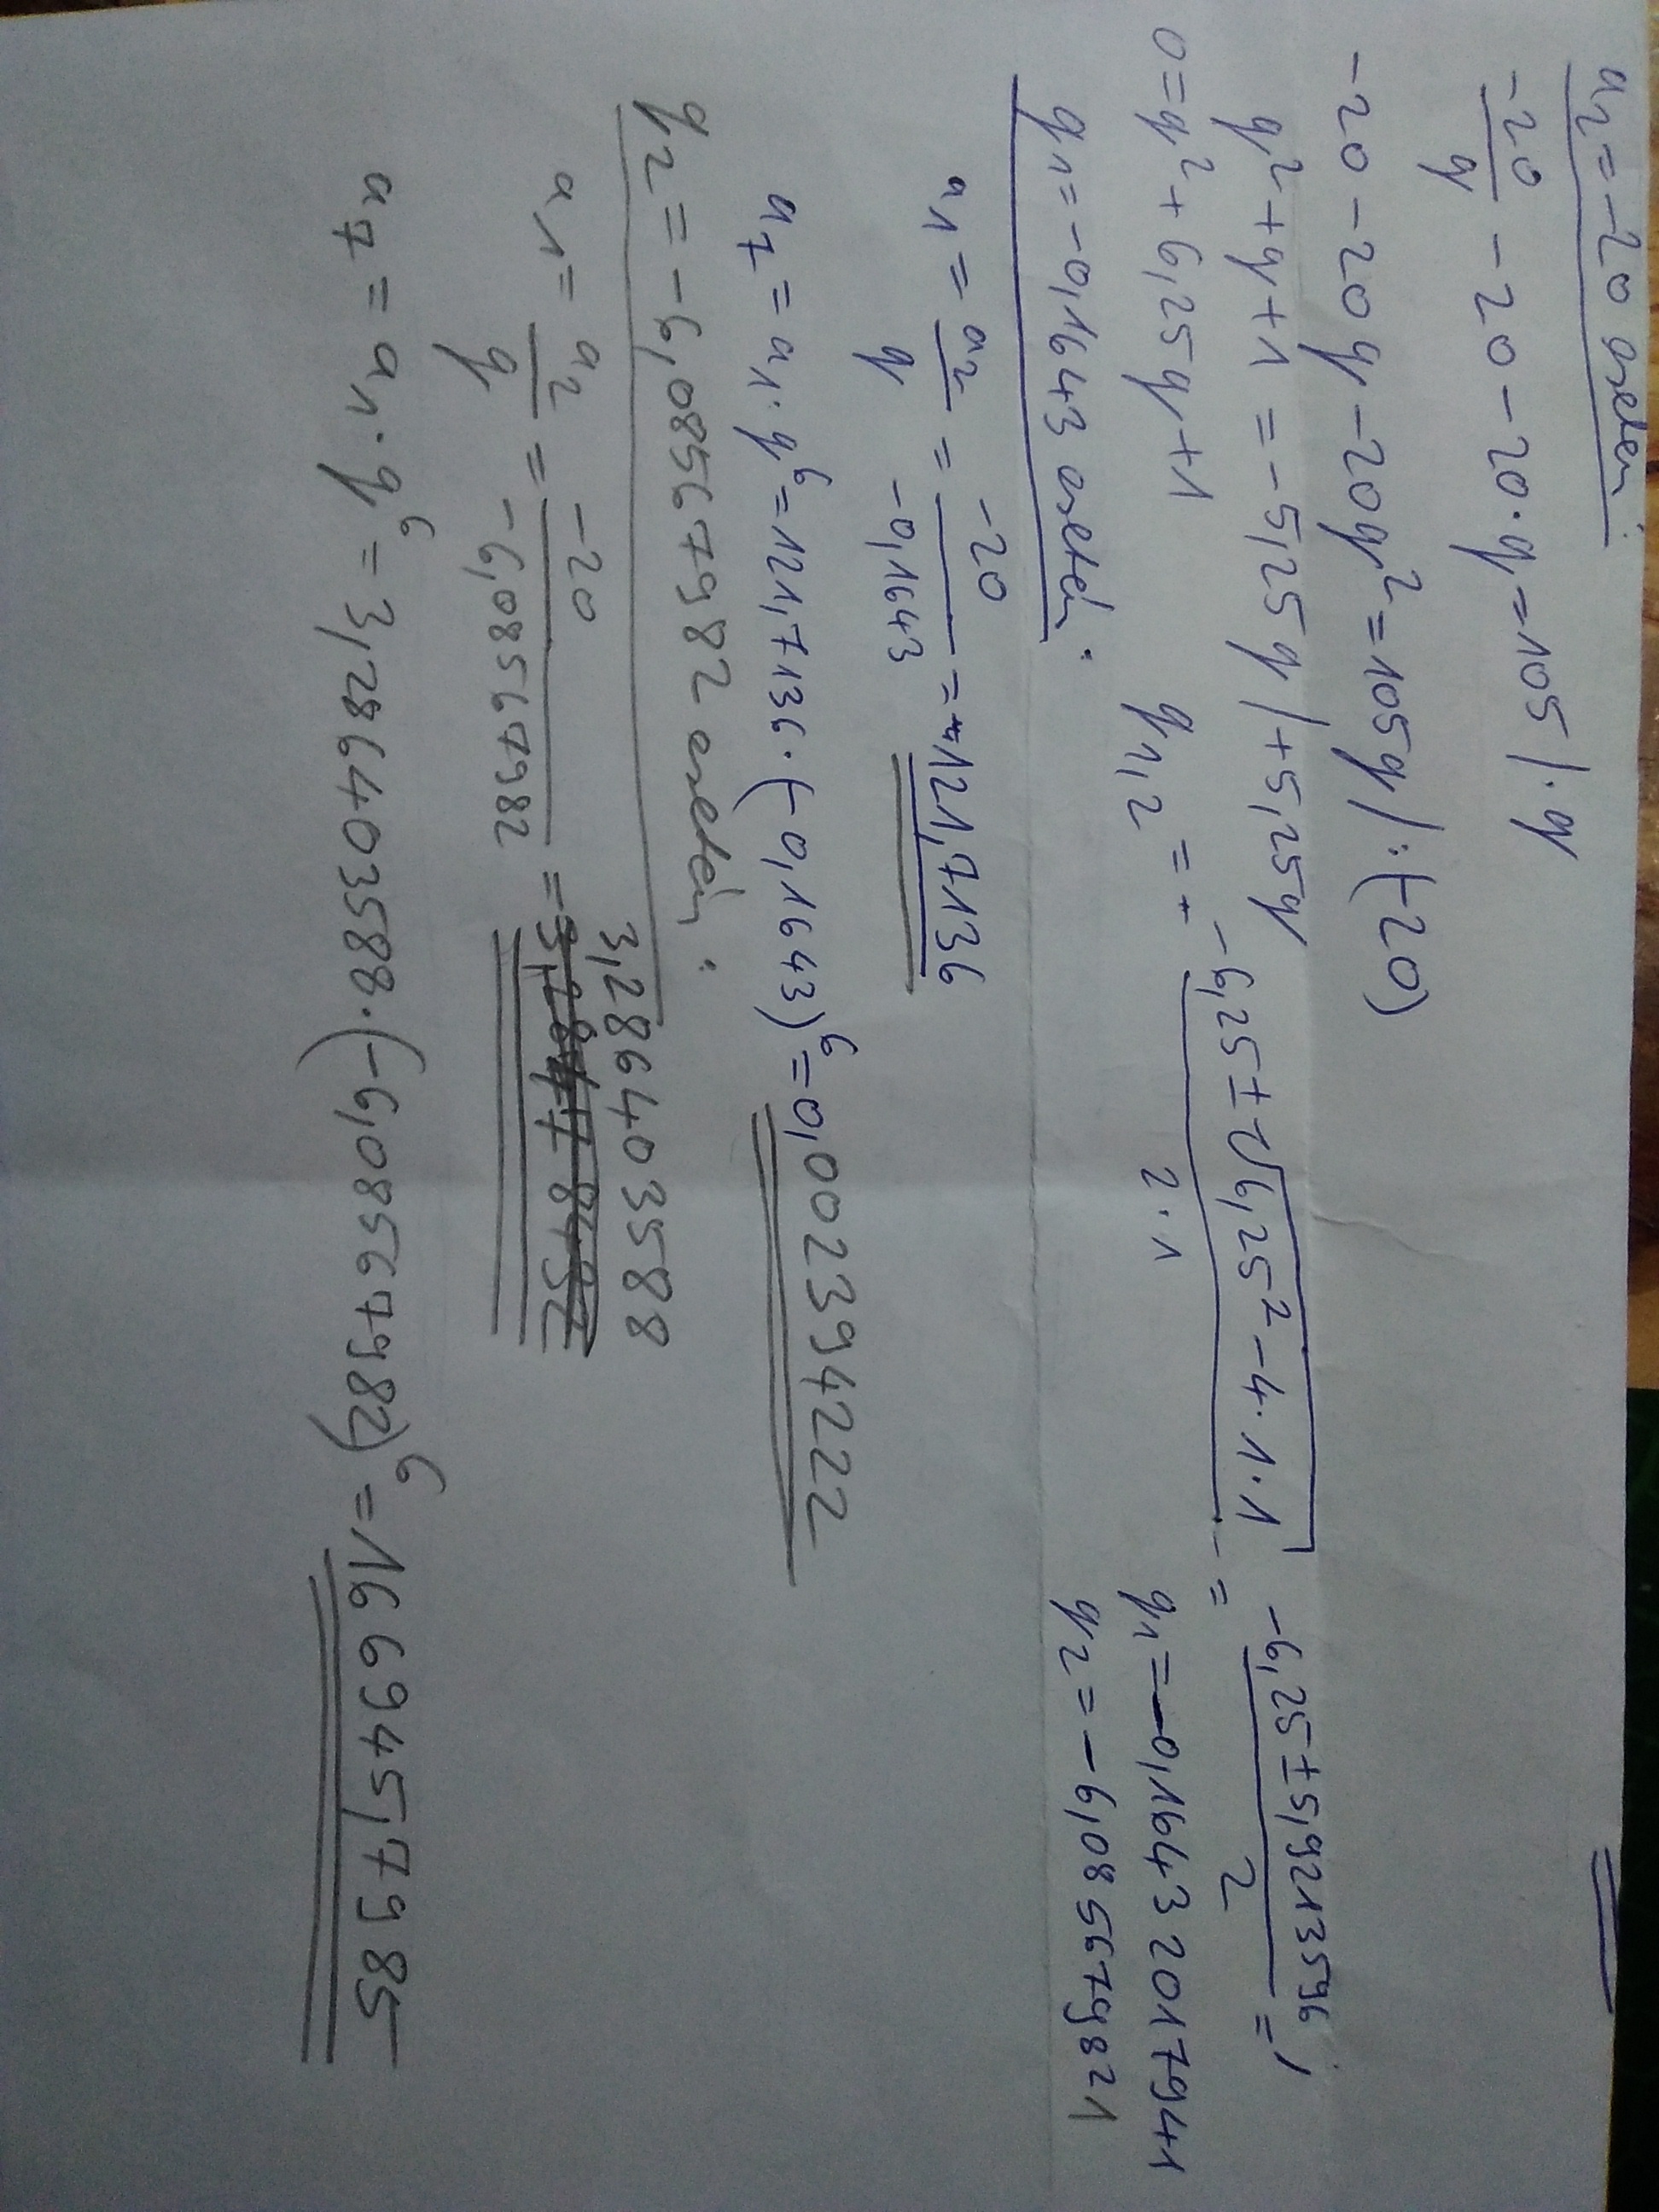 a₂=-20 esetén
-20/q - 20 - 20·q = 105 /·q
-20 - 20q - 20q² = 105q /:(-20)
q² + q + 1 = -5,25q /+5,25q
0 = q² + 6,25q + 1
q₁,₂ = (-6,25 ± √(6,25² - 4·1·1)) / (2·1) = (-6,25 ± 5,9213596) / 2 =
q₁ = -0,1643201794 1
q₂ = -6,0855679821
q₁ = -0,1643 esetén:
a₁ = a₂/q = -20/-0,1643 = 121,7136
a₇ = a₁·q⁶ = 121,7136·(-0,1643)⁶ = 0,002394222
q₂ = -6,085567982 esetén:
a₁ = a₂/q = -20/-6,085567982 = 3,286403588
a₇ = a₁·q⁶ = 3,286403588·(-6,085567982)⁶ = 166945,7985